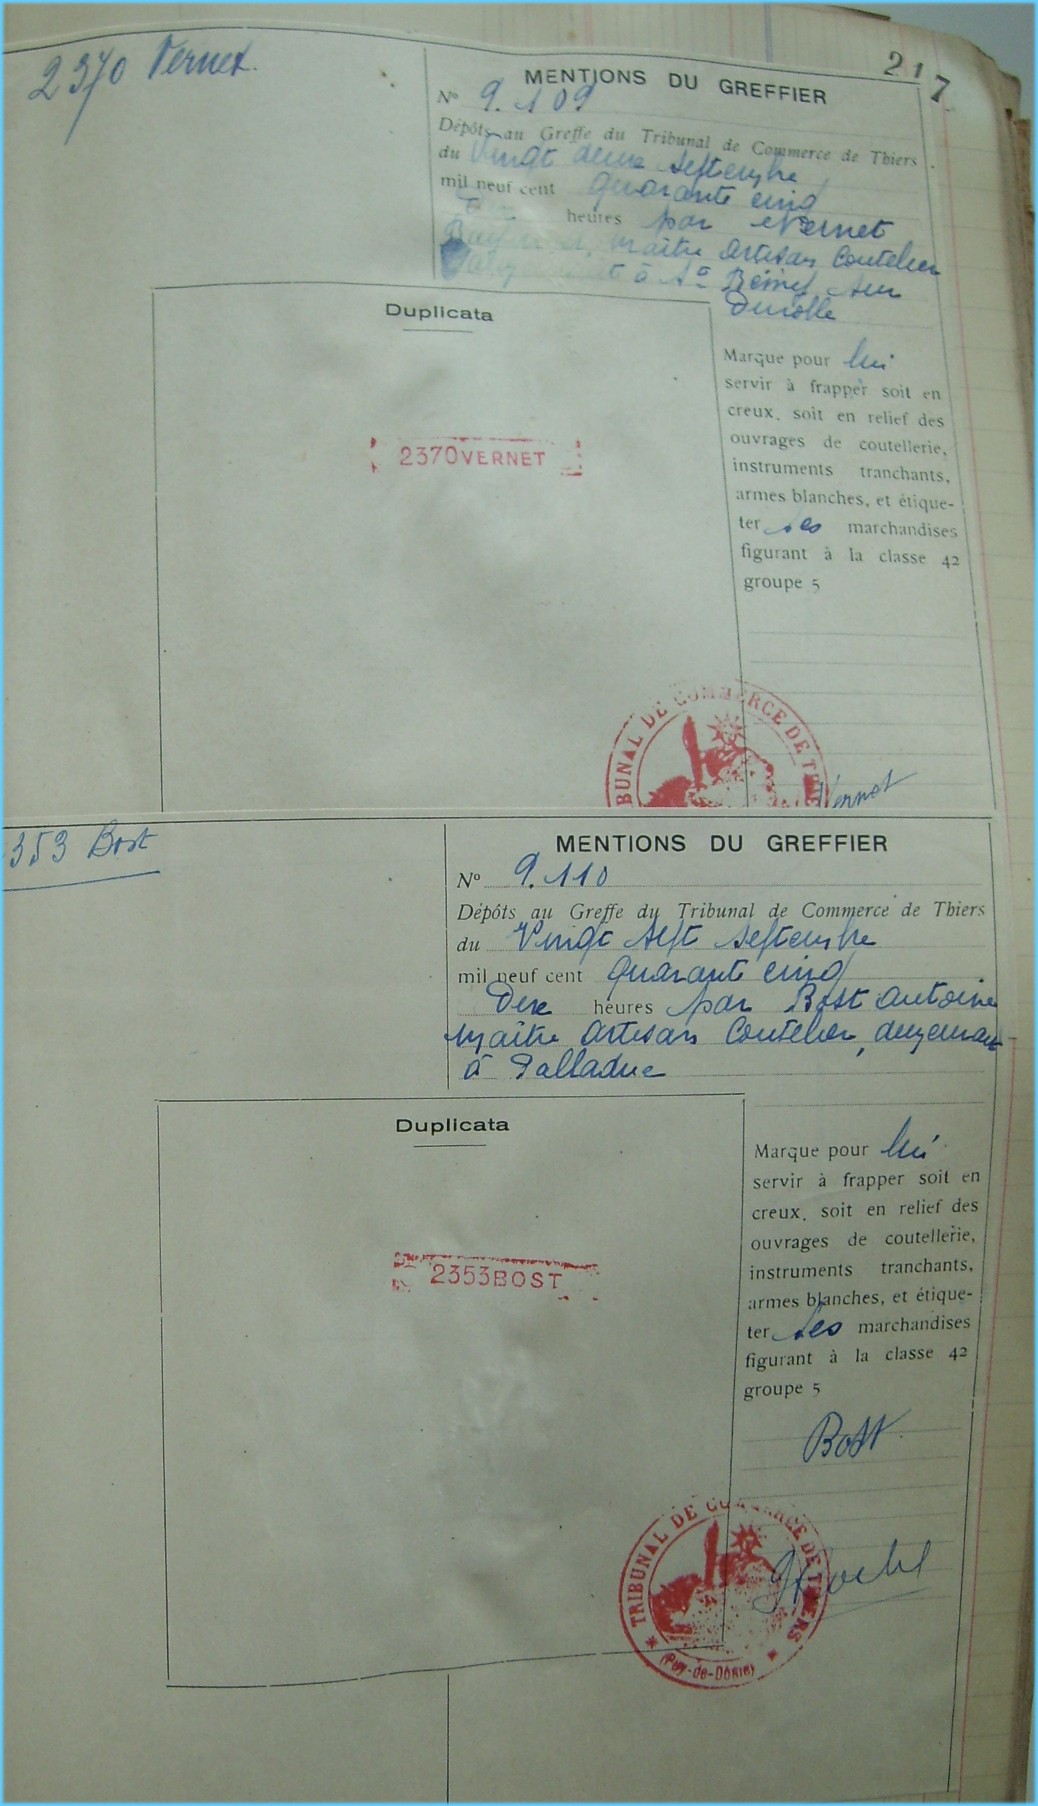 2370 Vernet.
217
MENTIONS DU GREFFIER
N° 9.109
Dépôts au Greffe du Tribunal de Commerce de Thiers
du Vingt deux Septembre
mil neuf cent quarante cinq
heures par Vernet
maître artisan Coutelier
à St Rémy sur
Durolle
Duplicata
2370VERNET
Marque pour lui
servir à frapper soit en
creux, soit en relief des
ouvrages de coutellerie,
instruments tranchants,
armes blanches, et étique-
ter ses marchandises
figurant à la classe 42
groupe 5
TRIBUNAL DE COMMERCE DE THIERS
Vernet
353 Bost
MENTIONS DU GREFFIER
N° 9.110
Dépôts au Greffe du Tribunal de Commerce de Thiers
du Vingt sept Septembre
mil neuf cent quarante cinq
heures par Bost Antoine
maître artisan Coutelier, demeurant
à Palladuc
Duplicata
2353BOST
Marque pour lui
servir à frapper soit en
creux, soit en relief des
ouvrages de coutellerie,
instruments tranchants,
armes blanches, et étique-
ter ses marchandises
figurant à la classe 42
groupe 5
Bost
TRIBUNAL DE COMMERCE DE THIERS
(Puy-de-Dôme)